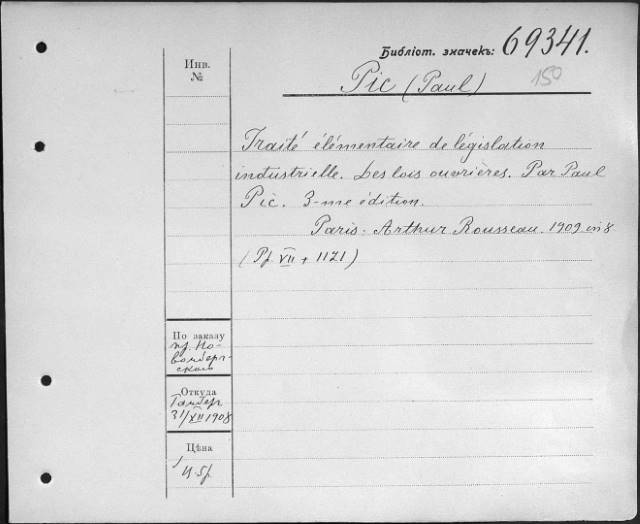 Библіот. значекъ: 69341.
Pic (Paul) 150
Инв. №
Traité élémentaire de législation
industrielle. Les lois ouvrières. Par Paul
Pic. 3-me édition.
Paris. Arthur Rousseau. 1909. in 8
(Pp. VII + 1121)
По заказу
пр. Но-
вомберг-
скаго
Откуда
31/XII 1908
Цѣна